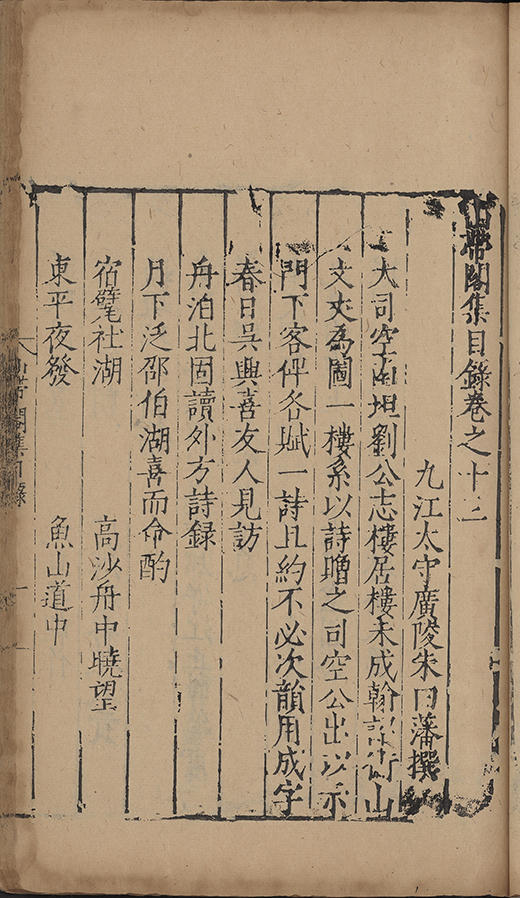 山帶閣集目錄卷之十二
九江太守廣陵朱曰藩撰
大司空南坦劉公志樓居樓未成翰詔衡山
文丈為圖一樓系以詩贈之司空公出以示
門下客俾各賦一詩且約不必次韻用成字
春日吳興喜友人見訪
舟泊北固讀外方詩録
月下泛邵伯湖喜而命酌
宿甓社湖 高沙舟中曉望
東平夜發 魚山道中
山帶閣集目錄 一